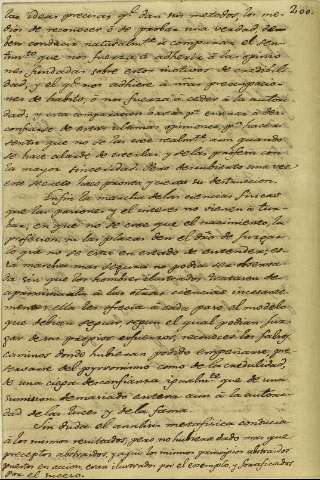 200.
las ideas precisas qe. dan sus metodos, los me-
dios de reconocer ó de probar una verdad de
ben conducir naturalmte. á comparar el sen-
timto. que nos fuerza á adherir á las opinio
nes fundadas sobre estos motivos de credibili
dad, y el qe. nos adhiere á nras preocupacio
nes de habito, ó nos fuerza á ceder á la autori-
dad: y esta comparacion basta pa. enseñar á des-
confiarse de estas ultimas opiniones, pa. hacer
sentir que no se las cree realmte. aun quando
se hace alarde de creerlas, y se las profesa con
la mayor sinceridad. Pero descubierto una vez
este secreto hace pronta y cierta su destruccion.
Enfin la marcha de las ciencias fisicas
que las pasiones y el interes no vienen á tur-
bar, en que no se cree que el nacimiento, la
profesion, ni las plazas den el dro de juzgar
lo que no se está en estado de entender; es-
ta marcha mas segura no podia ser observa-
da sin que los hombres ilustrados tratasen de
aproximarla á las otras ciencias incesante-
mente: ella les ofrecia á cada paso el modelo
que debian seguir, segun el qual podian juz-
gar de sus propios esfuerzos, reconocer los falsos
caminos donde hubieran podido empeñarse, pre-
servarse del pyrronismo como de la credulidad,
de una ciega desconfianza igualmte. que de una
sumision demasiado entera aun á la autori-
dad de las luces y de la fama.
Sin duda el analisis metafisica conducia
á los mismos resultados, pero no hubiera dado mas que
preceptos abstraidos, y aqui los mismos principios abstraidos
puestos en accion, eran ilustrados por el exemplo, y fortificados
por el suceso.